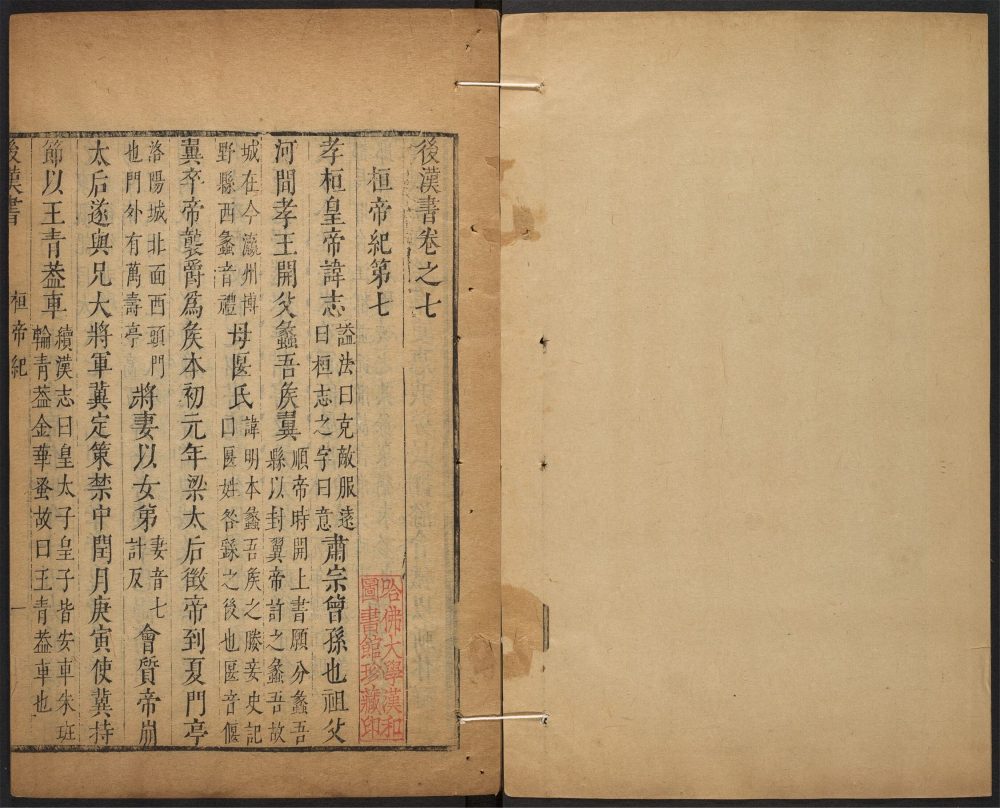 後漢書卷之七
桓帝紀第七
孝桓皇帝諱志謚法曰克敵服遠曰桓志之字曰意肅宗曾孫也祖父
河間孝王開父蠡吾矦翼順帝時開上書願分蠡吾縣以封翼帝許之蠡吾故
城在今瀛州博野縣西蠡音禮母匽氏諱明本蠡吾矦之媵妾史記曰匽姓咎繇之後也匽音偃
翼卒帝襲爵爲矦本初元年梁太后徵帝到夏門亭
洛陽城北面西頭門也門外有萬壽亭將妻以女弟妻音七計反會質帝崩
太后遂與兄大將軍冀定策禁中閏月庚寅使冀持
節以王青葢車續漢志曰皇太子皇子皆安車朱班輪青葢金華蚤故曰王青葢車也
後漢書 桓帝紀 一
哈佛大學漢和
圖書館珍藏印